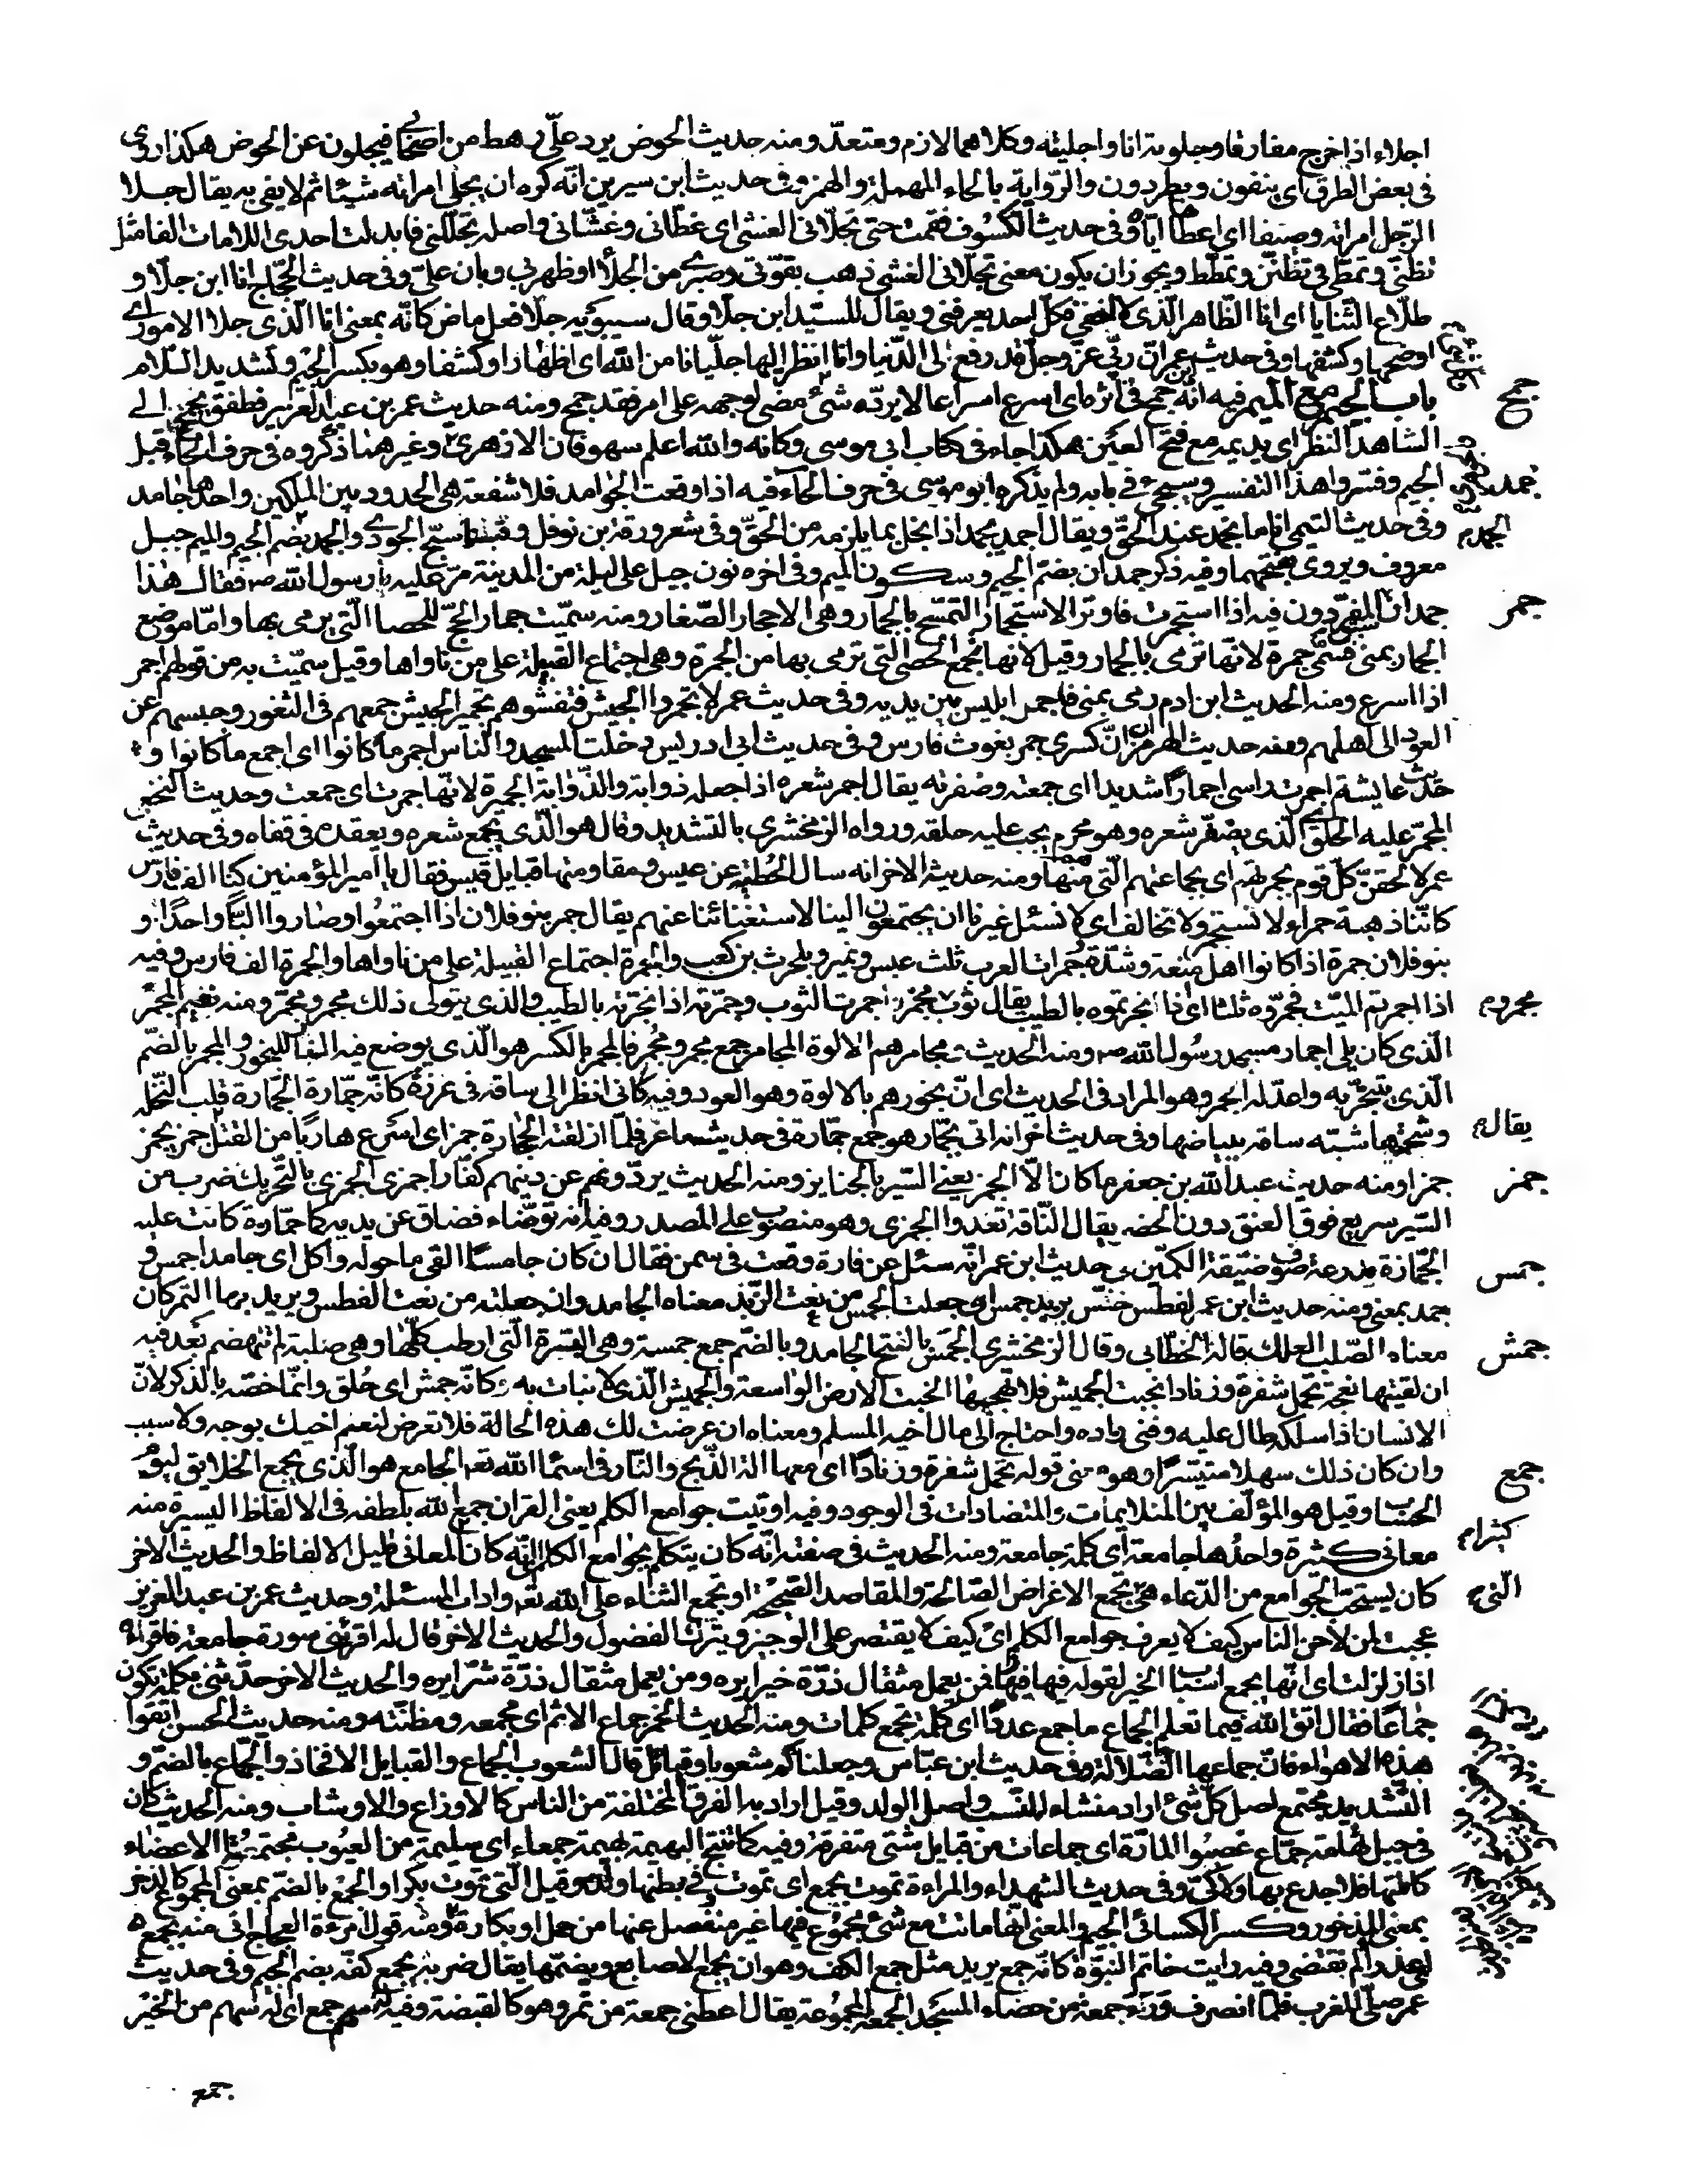 اجلاء اذا خرج مفارقا وجلوته انا واجليته وكلاهما لازم ومتعد ومنه حديث الحوض يرد علّى رهط من اصحابي فيجلون عن الحوض هكذا روى
فى بعض الطرق اى ينفون ويطردون والرّواية بالحاء المهملة والهمز وفى حديث ابن سيرين انّه كره ان يجلى امراته شيئا ثم لا يفى به يقال جلا
الرّجل امراته وصيفا اى اعطاها ايّاه وفى حديث الكسوف فقمت حتى تجلّانى الغشى اى غطّانى وغشّانى واصله تجلّلنى فابدلت احدى اللامات الفا مثل
تظنّى وتمطّى فى تظنّن وتمطّط ويجوز ان يكون معنى تجلّانى الغشى ذهب بقوّتى وصبرى من الجلاء او ظهر بى وبان علىّ وفى حديث الحجّاج انا ابن جلا و
طلّاع الثّنايا اى انا الظّاهر الّذى لا اخفى فكلّ احد يعرفنى ويقال للسيّد ابن جلا وقال سيبويه جلا فعل ماض كانّه بمعنى انا الّذى جلا الامور اى
اوضحها وكشفها وفى حديث ابن عمر انّ ربّى عزّ وجلّ قد رفع لى الدّنيا وانا انظر اليها جلّيانا من الله اى اظهارا وكشفا وهو بكسر الجيم وتشديد اللام
باب الجيم مع الميم فيه انّه جمح فى اثره اى اسرع اسراعا لا يردّه شئ وكل شئ مضى لوجهه على امر فقد جمح ومنه حديث عمر بن عبد العزيز فطفق يجمح الى
جمح
الشاهد النظر اى يديمه مع فتح العين هكذا جاء فى كتاب ابى موسى وكانه والله اعلم سهو فان الازهرى وغيره ذكروه فى حرف الحاء قبل
الجيم وفسّروا هذا التفسير وسيجئ فى بابه ولم يذكره ابو موسى فى حرف الحاء فيه اذا وقعت الجوامد فلا شفعة هى الحدود بين الملكين واحدها جامد
جمد
وفى حديث التيمى انا ما نجمد عند الحقّ ويقال جمد يجمد اذا بخل بما يلزمه من الحقّ وفى شعر ورقة بن نوفل وقبلنا سبّح الجودى والجمد بضم الجيم والميم جبل
معروف ويروى بفتحهما وفيه ذكر جمدان بضم الجيم وسكون الميم وفى اخره نون جبل على ليلة من المدينة مرّ عليه رسول الله ص فقال هذا
جمدان سبق المفرّدون فيه اذا استجمرت فاوتر الاستجمار التمسّح بالجمار وهى الاحجار الصّغار ومنه سمّيت جمار الحجّ للحصا الّتى يرمى بها وامّا موضع
جمر
الجمار بمنى فسمّى جمرة لانها ترمى بالجمار وقيل لانها مجمع الحصى التى ترمى بها من الجمرة وهى اجتماع القبيلة على من ناواها وقيل سمّيت به من قولهم اجمر
اذا اسرع ومنه الحديث ان ادم رمى بمنى فاجمر ابليس بين يديه وفى حديث عمر لا تجمروا الجيش فتفتنوهم تجمير الجيش جمعهم فى الثغور وحبسهم عن
العود الى اهلهم ومنه حديث الهرمزان انّ كسرى جمر بعوث فارس وفى حديث ابى ادريس دخلت المسجد والناس اجمر ما كانوا اى اجمع ما كانوا و
حديث عايشة اجمرت راسى اجمارًا شديدا اى جمعته وضفرته يقال اجمر شعره اذا جعله ذوابة والذّوابة الجميرة لانّها جمرت اى جمعت وحديث النخعى
المجمّر عليه الحلق اى الّذى يضفّر شعره وهو محرم يجب عليه حلقه ورواه الزمخشرى بالتشديد وقال هو الّذى يجمع شعره ويعقده فى قفاه وفى حديث
عمر لالحقنّ كلّ قوم بجمرتهم اى بجماعتهم الّتى هم منها ومنه حديثه الاخر انه سال الحطيئة عن عبس ومقاومتها قبايل قيس فقال يا امير المؤمنين كنّا الف فارس
كاننا ذهبة حمراء لا نستجمر ولا نحالف اى لا نسئل غيرنا ان يجتمعوا الينا لاستغنائنا عنهم يقال جمر بنو فلان اذا اجتمعوا وصاروا البًا واحدًا و
بنو فلان جمرة اذا كانوا اهل منعة وشدّة وجمرات العرب ثلث عبس ونمير وبلحرث بن كعب والجمرة اجتماع القبيلة على من ناواها والجمرة الف فارس وفيه
اذا اجمرتم الميّت فجمّروه ثلثا اى اذا بخرتموه بالطيب يقال ثوب مجمر اجمرت الثوب وجمّرته اذا بخرته بالطيب والذى يتولى ذلك مجمر ومجمّر ومنه نعيم المجمّر
الّذى كان يلى اجمار مسجد رسول الله ص ومنه الحديث ومجامرهم الالوة المجامر جمع مجمر ومُجمر فالمجمر بالكسر هو الّذى يوضع فيه النار للبخور والمجمر بالضّم
الّذى يتبخّر به واعدّ له الجمر وهو المراد فى الحديث اى انّ بخورهم بالالوة وهو العود وفيه كانى انظر الى ساقه فى غرزه كانّه جمّارة الجمّارة قلب النّخلة
وشحمتها شبّه ساقه ببياضها وفى حديث اخر انه اتى بجمّار هو جمع جمّارة فى حديث ماعز فلمّا اذلقته الحجارة جمز اى اسرع هاربًا من القتل جمز يجمز
يقال
جمزا ومنه حديث عبد الله بن جعفر ما كان الّا الجمز يعنى السّير بالجنايز ومنه الحديث يردّونهم عن دينهم كفّارا جمزى الجمزى بالتّحريك ضرب من
جمز
السّير سريع فوق العنق دون الحضر يقال النّاقة تعدوا الجمزى وهو منصوب على المصدر وفيه انه توضّاء فضاق عن يديه كمّا جمّازة كانت عليه
الجمّازة مدرعة صوف ضيّقة الكمّين فى حديث ابن عمر انّه سئل عن فارة وقعت فى سمن فقال ان كان جامسًا القى ما حوله واكل اى جامدا جمس و
جمس
جمد بمعنى ومنه حديث ابن عمير لفطس خنّس بزبد جمس ان جعلت الجمس من نعت الزّبد معناه الجامد وان جعلته من نعت الفطس ويريد به التمر كان
معناه الصّلب العلك قاله الخطّابى وقال الزمخشرى الجمس بالفتح الجامد وبالضمّ جمع جمسة وهى البسرة الّتى ارطب كلّها وهى صلبة لم تنهضم بعد فيه
جمش
ان لقيتها نعجة تحمل شفرة وزنادا بخبت الجميش فلا تهجها الخبت الارض الواسعة والجميش الّذى لا نبات به كانّه جمش اى حلق وانّما خصّه بالذكر لانّ
الانسان اذا سلكه طال عليه وفنى زاده واحتاج الى مال اخيه المسلم ومعناه ان عرضت لك هذه الحالة فلا تعرض لنعم اخيك بوجه ولا سبب
وان كان ذلك سهلا متيسّرًا وهو معنى قوله تحمل شفرة وزنادًا اى معها الة الذّبح والنّار فى اسماء الله تعالى الجامع هو الّذى يجمع الخلايق ليوم
جمع
الحساب وقيل هو المؤلّف بين المتلايمات والمتضادات فى الوجود وفيه اوتيت جوامع الكلم يعنى القران جمع الله بلطفه فى الالفاظ اليسيرة منه
معانى كثيرة واحدُها جامعة اى كلمة جامعة ومنه الحديث فى صفته انّه كان يتكلم بجوامع الكلم اى انّه كان المعانى قليل الالفاظ والحديث الاخر
كثير
كان يستحبّ الجوامع من الدّعاء هى تجمع الاغراض الصّالحة والمقاصد الصّحيحة او تجمع الثناء على الله تعالى واداب المسئلة وحديث عمر بن عبد العزيز
الّتى
عجبت لمن لاحن الناس كيف لا يعرف جوامع الكلم اى كيف لا يقتصر على الوجيز ويترك الفضول والحديث الاخر قال له اقرئنى سورة جامعة فاقراه
اذا زلزلت اى انّها تجمع اسباب الخير لقوله فيها فمن يعمل مثقال ذرّة خيرا يره ومن يعمل مثقال ذرّة شرّا يره والحديث الاخر حدّثنى بكلمة تكون
جماعًا فقال اتق الله فيما تعلم الجماع ما جمع عددًا اى كلمة تجمع كلمات ومنه الحديث الخمر جماع الاثم اى مجمعه ومظنّته ومنه حديث الحسن اتّقوا
هذه الاهواء فانّ جماعها الضّلالة وفى حديث ابن عبّاس وجعلناكم شعوبا وقبائل قال الشعوب الجماع والقبايل الافخاذ والجمّاع بالضّم و
التّشديد مجتمع اصل كلّ شئ اراد منشاء النّسب واصل الولد وقيل اراد به الفرق المختلفة من الناس كالاوزاع والاوشاب ومنه الحديث كان
فى جبل تهامة جمّاع غصبوا المارّة اى جماعات من قبايل شتى متفرقة وفيه كما تنتج البهيمة بهيمة جمعاء اى سليمة من العيوب مجتمعة الاعضاء
كاملتها فلا جدع بها ولا كىّ وفى حديث الشهداء والمراءة تموت بجمع اى تموت فى بطنها ولد وقيل الّتى تموت بكرا والجمع بالضّم بمعنى المجموع كالذخر
بمعنى المذخور وكسر الكسائى الجيم والمعنى انّها ماتت مع شئ مجموع فيها غير منفصل عنها من حمل او بكارة ومنه قول امرءة العجاج انى منه بجمع
اى عذراء لم تقتضى وفيه رايت خاتم النبوّة كانّه جمع يريد مثل جمع الكف وهو ان تجمع الاصابع ويضمّها يقال ضربه بجمع كفّه بضم الجيم وفى حديث
عمر صلّى المغرب فلمّا انصرف درء جمعة من حصاء المسجد الجمعة المجموعة يقال اعطنى جمعة من تمر وهو كالقبضة وفيه له سهم جمع اى له سهم من الخير